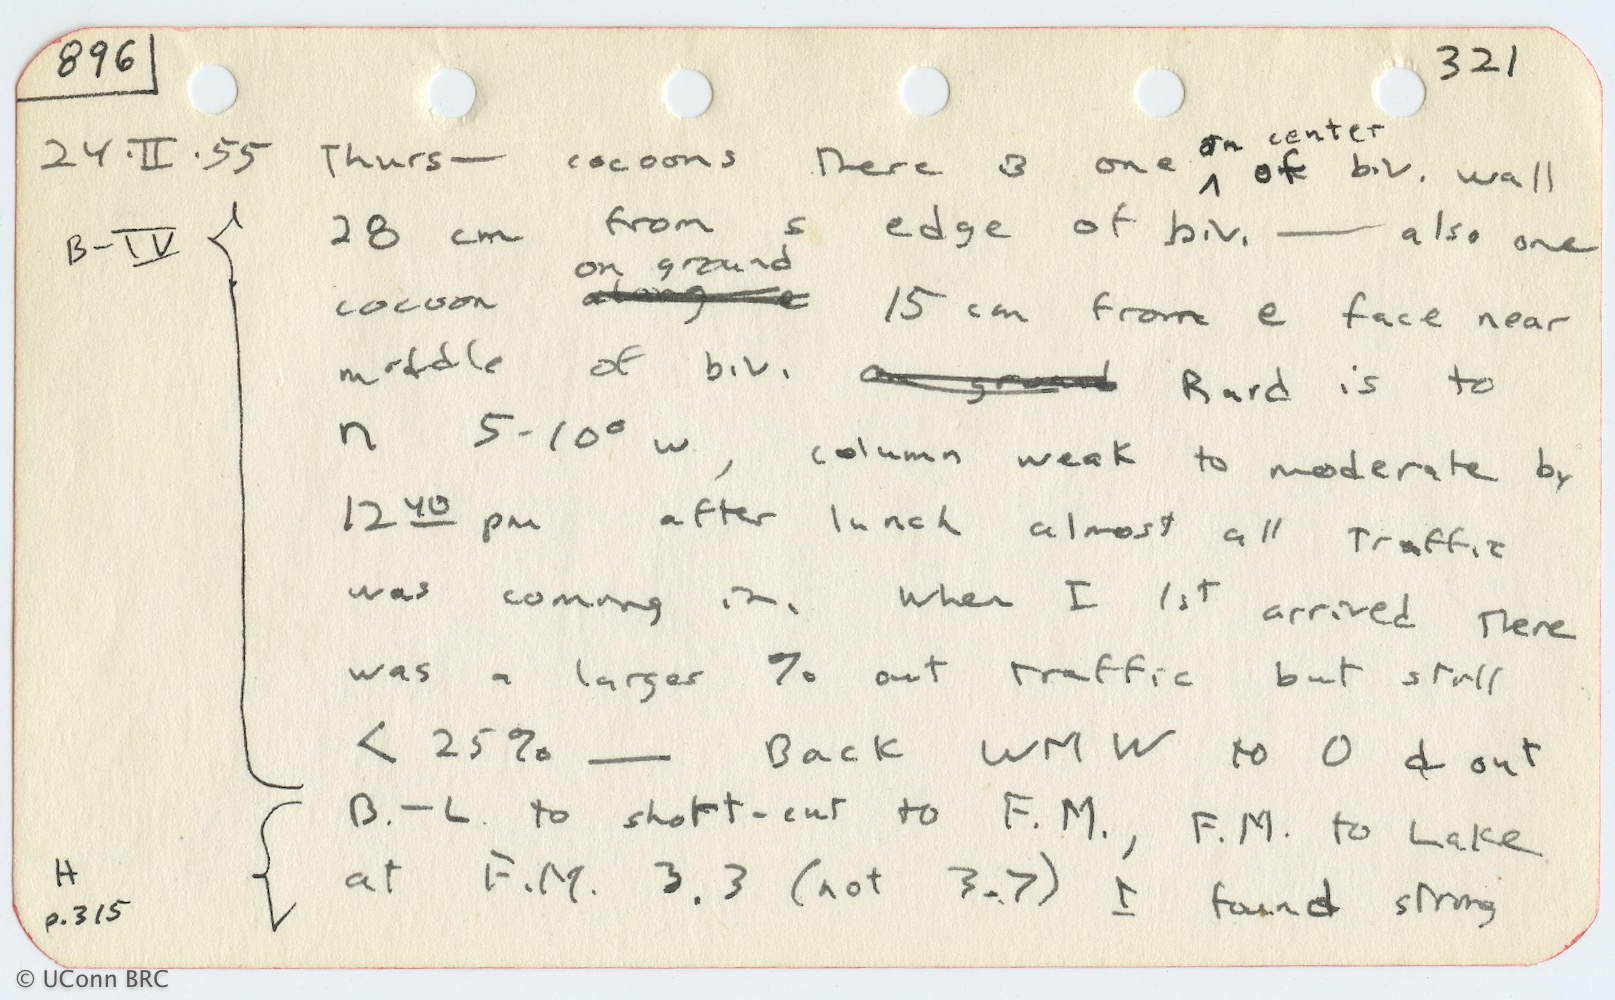 896
321
24·II·55 Thurs— cocoons There is one on center of biv. wall
B-IV
28 cm from s edge of biv. — also one
on ground
cocoon along e 15 cm from e face near
middle of biv. on ground Raid is to
n 5-10° w, column weak to moderate by
12 40 pm after lunch almost all traffic
was coming in. When I 1st arrived There
was a larger % out traffic but still
< 25% — Back WMW to O & out
B.-L. to short-cut to F.M., F.M. to Lake
H
at F.M. 3.3 (not 3.7) I found strong
p.315
© UConn BRC